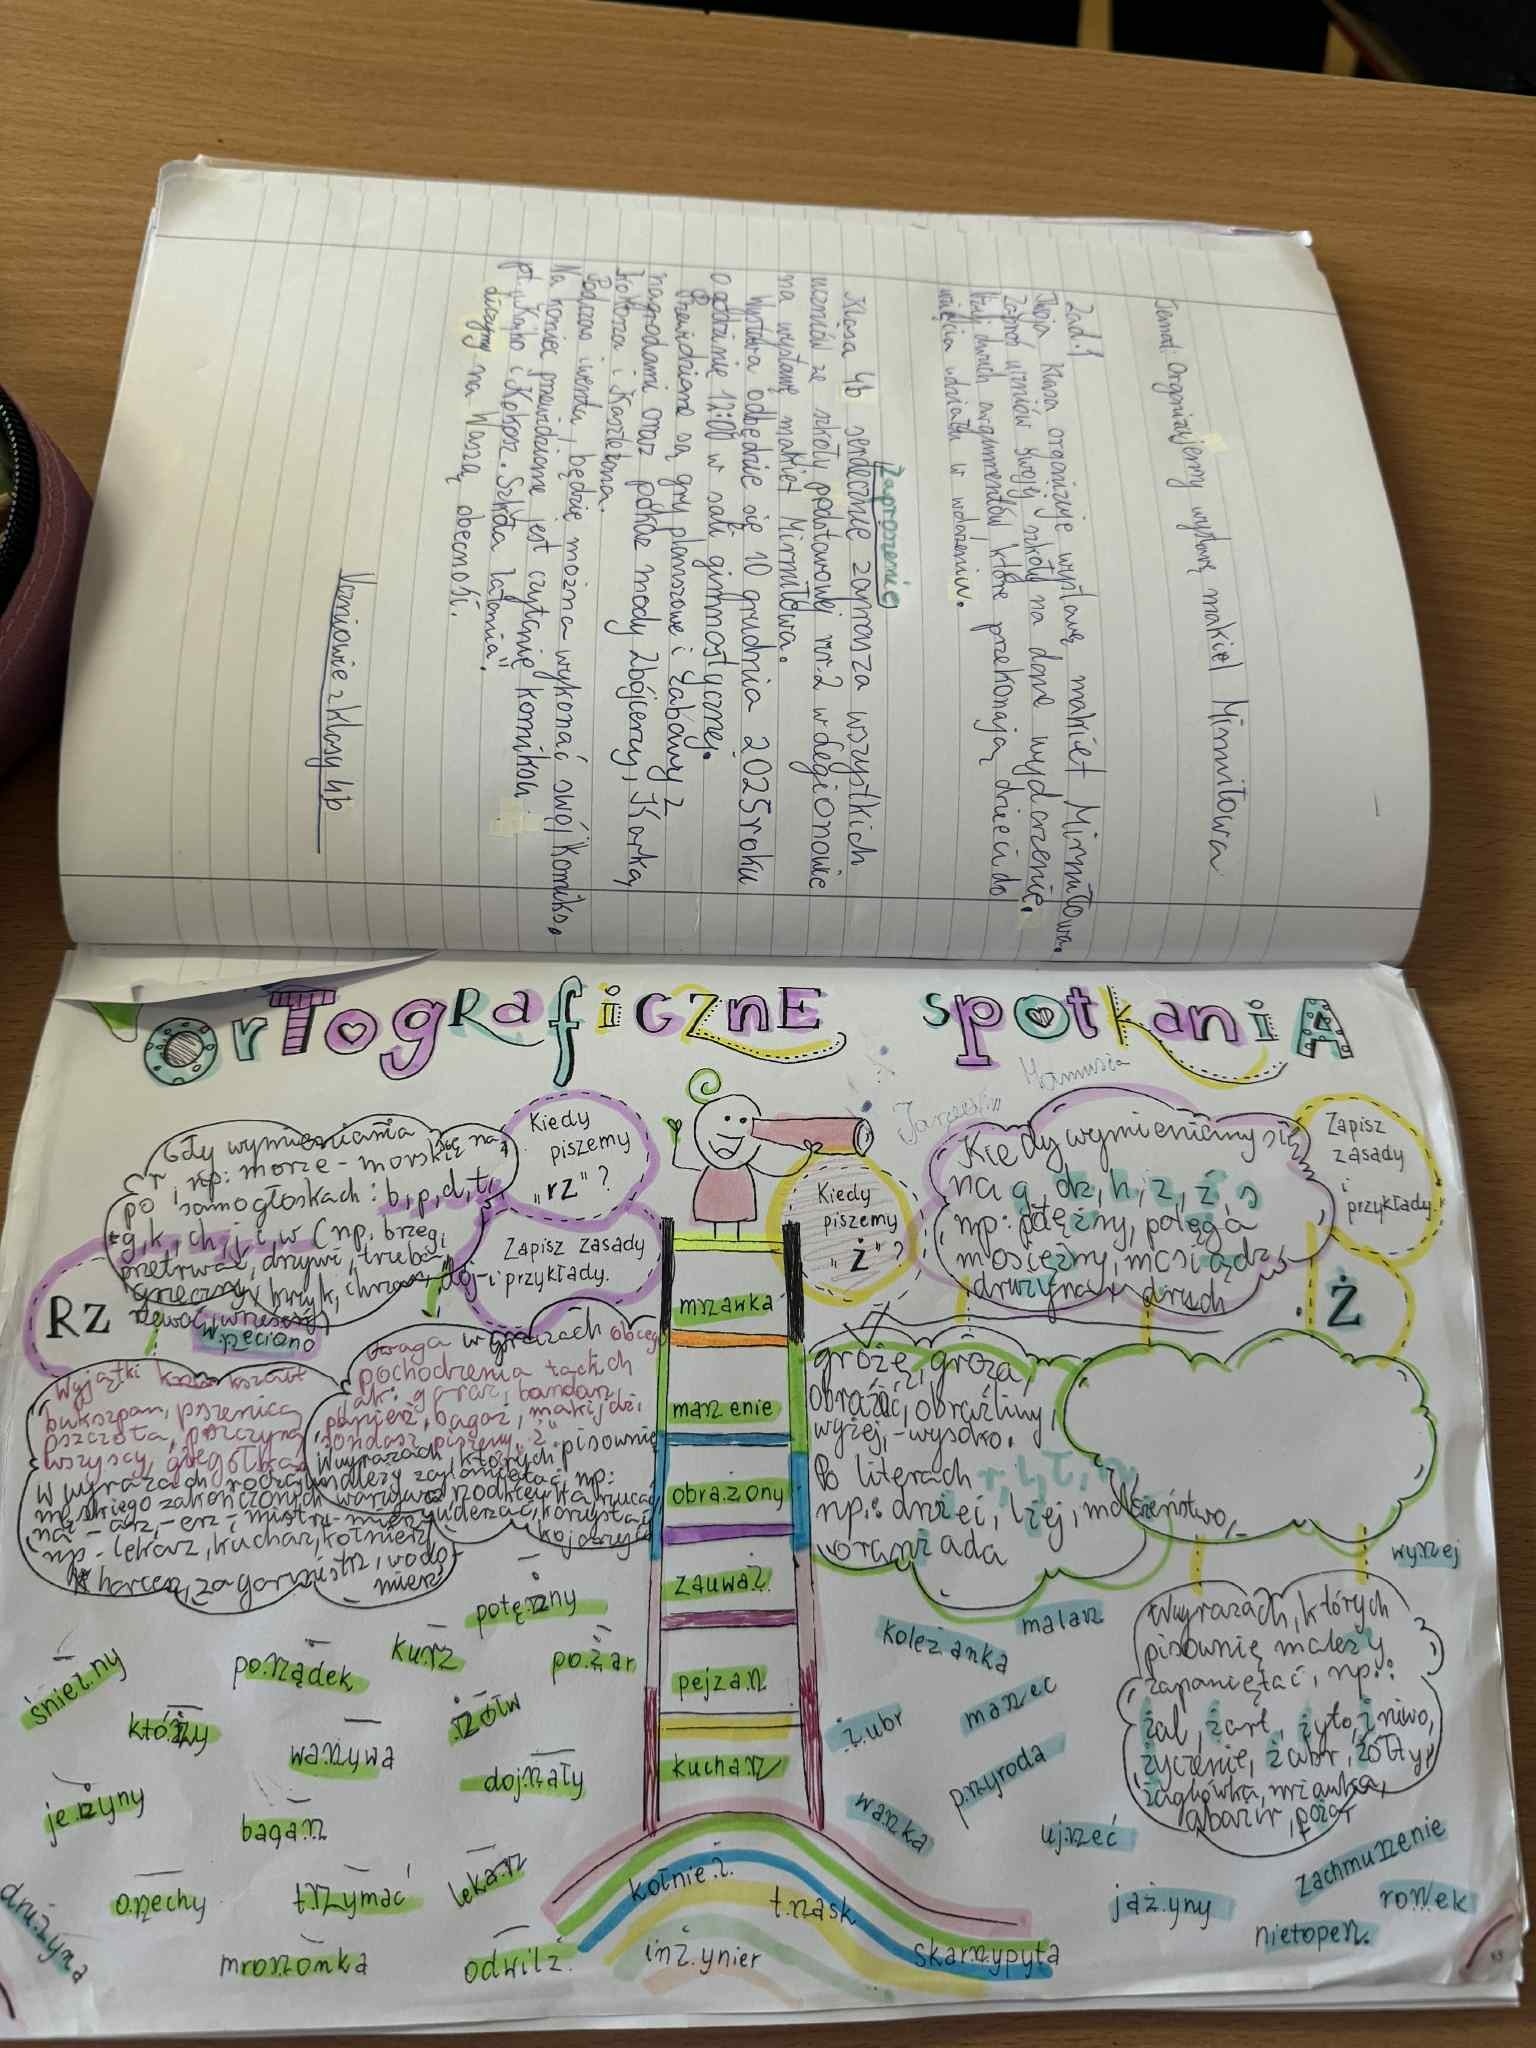 Temat: Organizujemy wystawę makiet Mirmiłowa
Zad. 1
Twoja klasa organizuje wystawę makiet Mirmiłowa.
Zaproś uczniów swojej szkoły na dane wydarzenie.
Użyj dwóch argumentów, które przekonają dzieci do
wzięcia udziału w wdarzeniu.
Zaproszenie
Klasa 4b serdecznie zaprasza wszystkich
uczniów ze szkoły podstawowej nr. 2 w Legionowie
na wystawę makiet Mirmiłowa.
Wystawa odbędzie się 10 grudnia 2025 roku
o godzinie 12:00 w sali gimnastycznej.
Przewidziane są gry planszowe i zabawy z
nagrodami oraz pokaz mody Zbójcerzy, Korka,
Kokosza i Kasztelana.
Podczas iwentu, będzie można wykonać swój komiks.
Na koniec przewidziane jest czytanie komiksu
pt. „Kajko i Kokosz. Szkoła latania".
Liczymy na Waszą obecność.
Uczniowie z klasy 4b
ORTOGRAFICZNE SPOTKANIA
Gdy wymieniania
się na
r, np: morze - morskie
po samogłoskach: b, p, d, t,
g, k, ch, j, i, w (np. brzeg,
przetrwać, drzwi, trzeba,
grzeczny, krzyk, chrzan, doj-
rzewać, wrzesień)
wrzeciono
Kiedy
piszemy
„rz"?
Zapisz zasady
i przykłady.
RZ
Wyjątki kształt
bukszpan, pszenica
pszczoła, poczwarna
wszyscy, gżegżółka
w wyrazach rodzaju
męskiego zakończonych
na: -arz, -erz i mistrz, mierz
np - lekarz, kucharz, kołnierz
harcerz, zegarmistrz, wodo-
mierz
Uwaga w wyrazach obcego
pochodzenia takich
jak: garaż, bandaż,
papież, bagaż, makijaż,
sondaż piszemy „ż"
Wyrazach, których pisownię
należy zapamiętać, np:
warzywa, rzodkiewka, rzucać
uderzać, korzystać
kojarzyć
Kiedy
piszemy
„ż"?
Kiedy wymieniamy się
na g, dz, h, z, ź, s
np: potężny, potęga
mosiężny, mosiądz,
drużyna, druh
Zapisz
zasady
i
przykłady.
Ż
groźę, groza,
obrazić, obraźliwy,
wyżej, - wysoko.
Po literach r, l, ł, n
np.: drżeć, lżej, małżeństwo,
oranżada
Wyrazach, których
pisownię należy
zapamiętać, np.:
żal, żart, żyto, żniwo,
życzenie, żubr, żółty,
żaglówka, mżawka,
abażur, pożar
mrzawka
marzenie
obrażony
zauważ.
pejzarz
kucharz
śnieżny
porządek
kurz
potężny
pożar
który
warzywa
żółw
dojrzały
jeżyny
bagarz
orzechy
trzymać
lekarz
drużyna
mrorzonka
odwilż.
kołnież.
trzask
inżynier
skarzypyta
koleżanka
malarz
wyrzej
żubr
marzec
przyroda
warzka
ujrzeć
jażyny
zachmurzenie
rorzek
nietoperz.